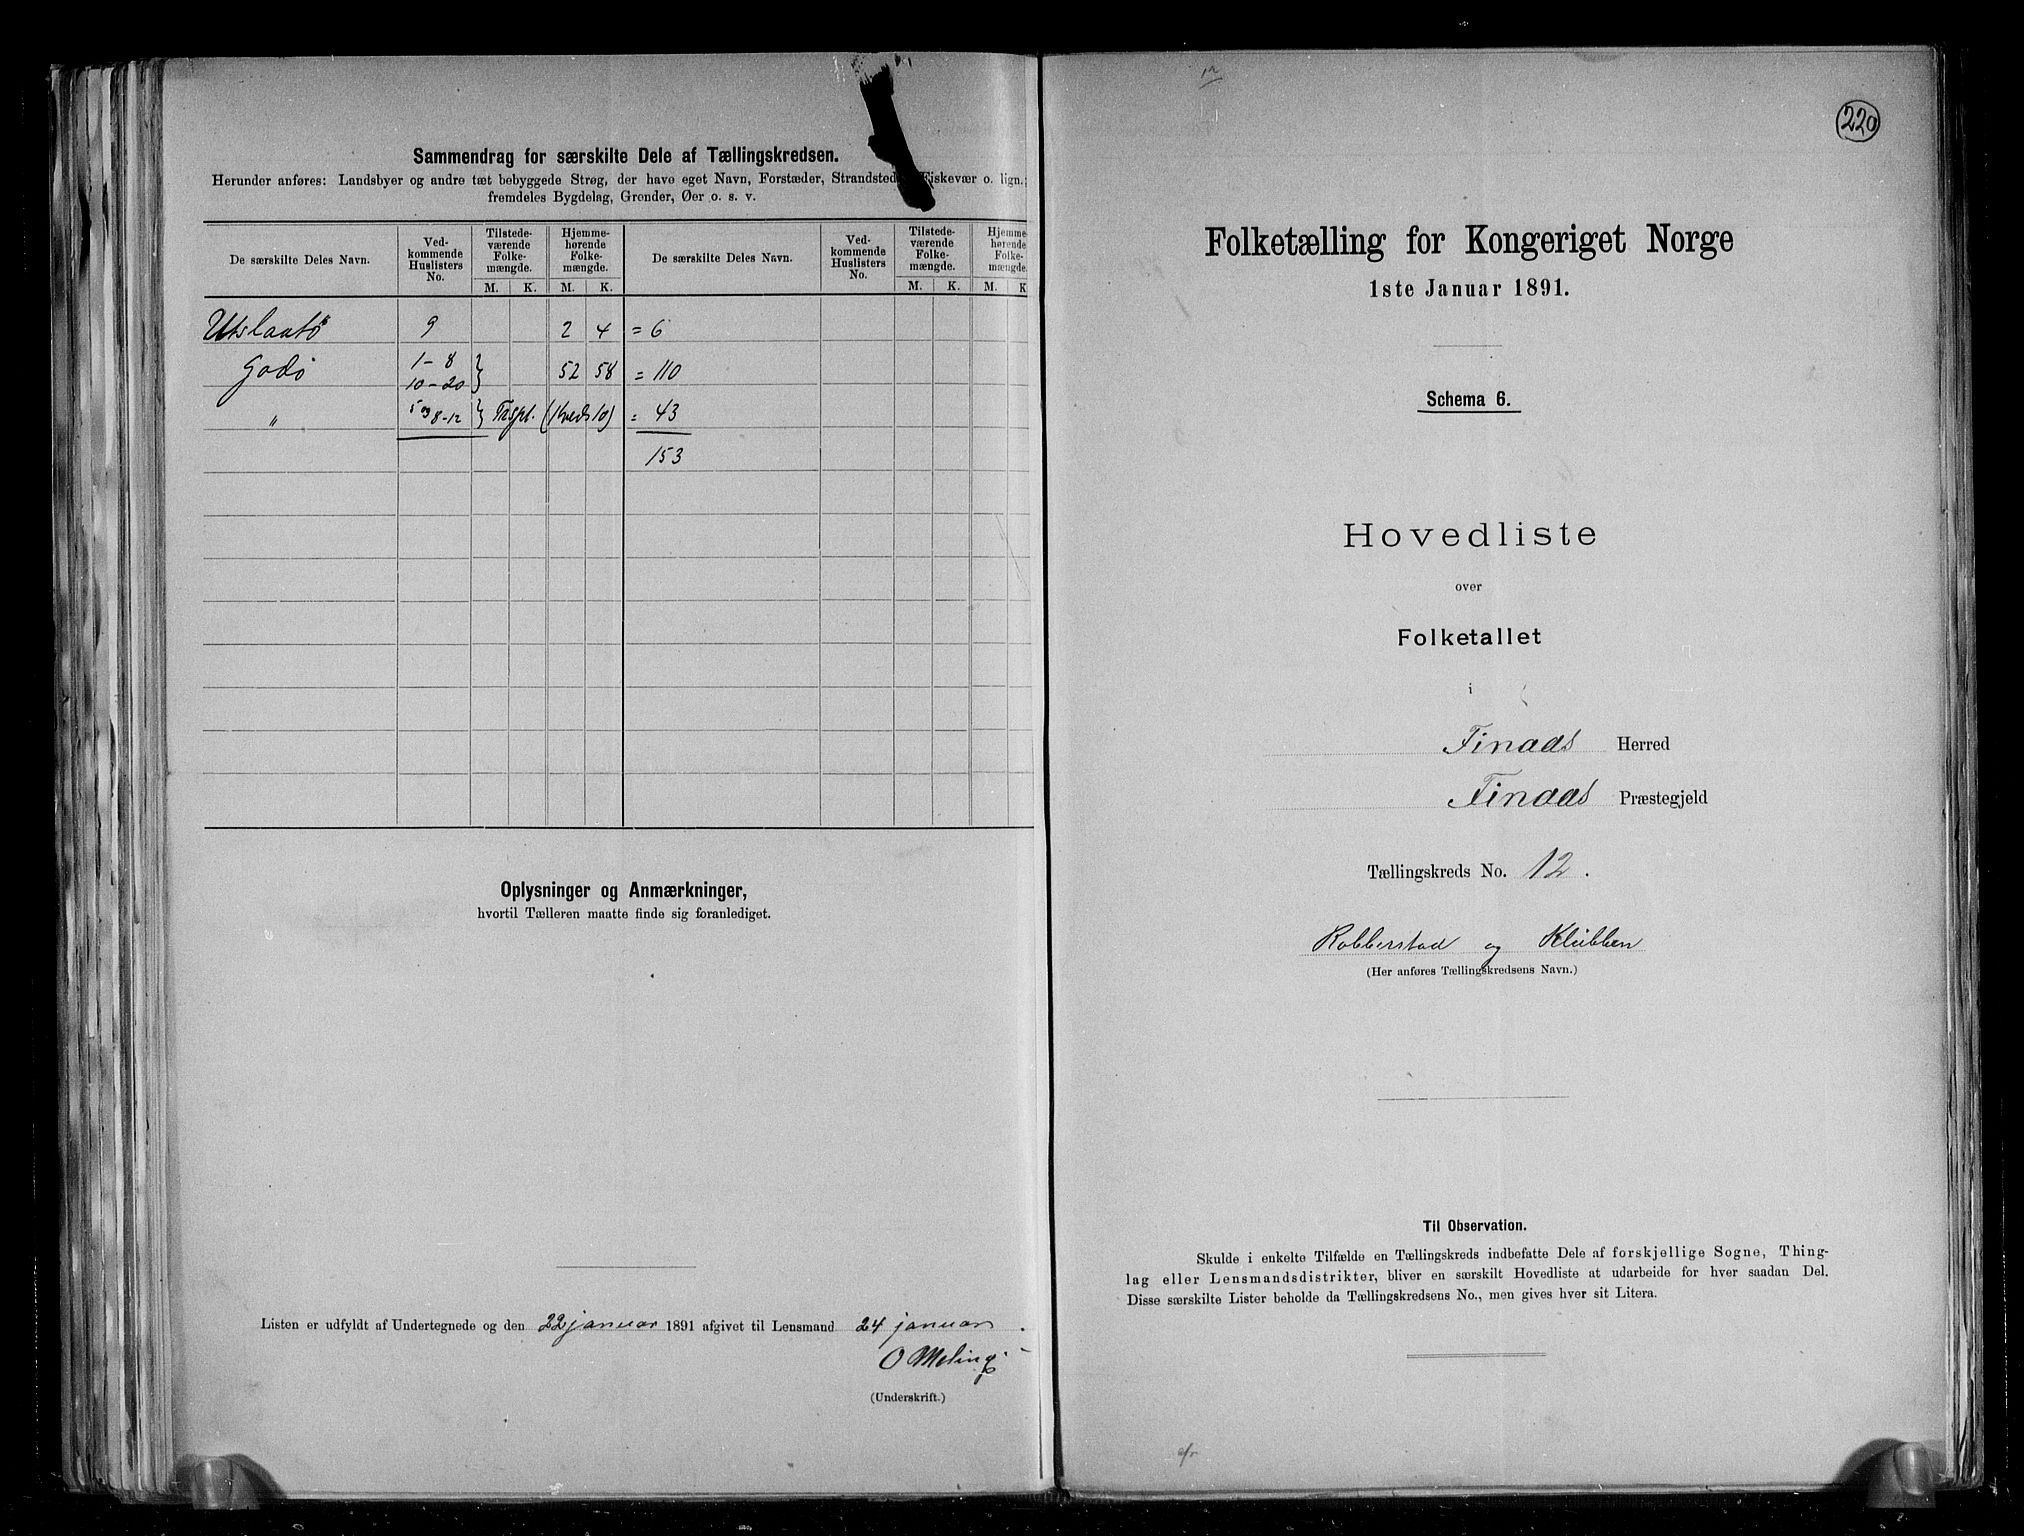 Sammendrag for særskilte Dele af Tællingskredsen.
Herunder anføres: Landsbyer og andre tæt bebyggede Strøg, der have eget Navn, Forstæder, Strandsted Fiskevær o. lign.;
fremdeles Bygdelag, Grender, Øer o. s. v.
De særskilte Deles Navn. Ved-kommende Huslisters No. Tilstede-værende Folke-mængde. Hjemme-hørende Folke-mængde. De særskilte Deles Navn. Ved-kommende Huslisters No. Tilstede-værende Folke-mængde. Hjemme-hørende Folke-mængde.
M. K. M. K. M. K. M. K
Utslaatø 9 2 4 = 6
Godø 1-8 10-20 } 52 58 = 110
" 5 og 8-12 } Tasgst. (Kreds 10) = 43
153
Oplysninger og Anmærkninger,
hvortil Tælleren maatte finde sig foranlediget.
Listen er udfyldt af Undertegnede og den 22 januar 1891 afgivet til Lensmand 24 januar.
O Meling
(Underskrift.)
220
Folketælling for Kongeriget Norge
1ste Januar 1891.
Schema 6.
Hovedliste
over
Folketallet
i
Finaas Herred
Finaas Præstegjeld
Tællingskreds No. 12.
Robberstad og Klubben
(Her anføres Tællingskredsens Navn.)
Til Observation.
Skulde i enkelte Tilfælde en Tællingskreds indbefatte Dele af forskjellige Sogne, Thing-
lag eller Lensmandsdistrikter, bliver en særskilt Hovedliste at udarbeide for hver saadan Del.
Disse særskilte Lister beholde da Tællingskredsens No., men gives hver sit Litera.